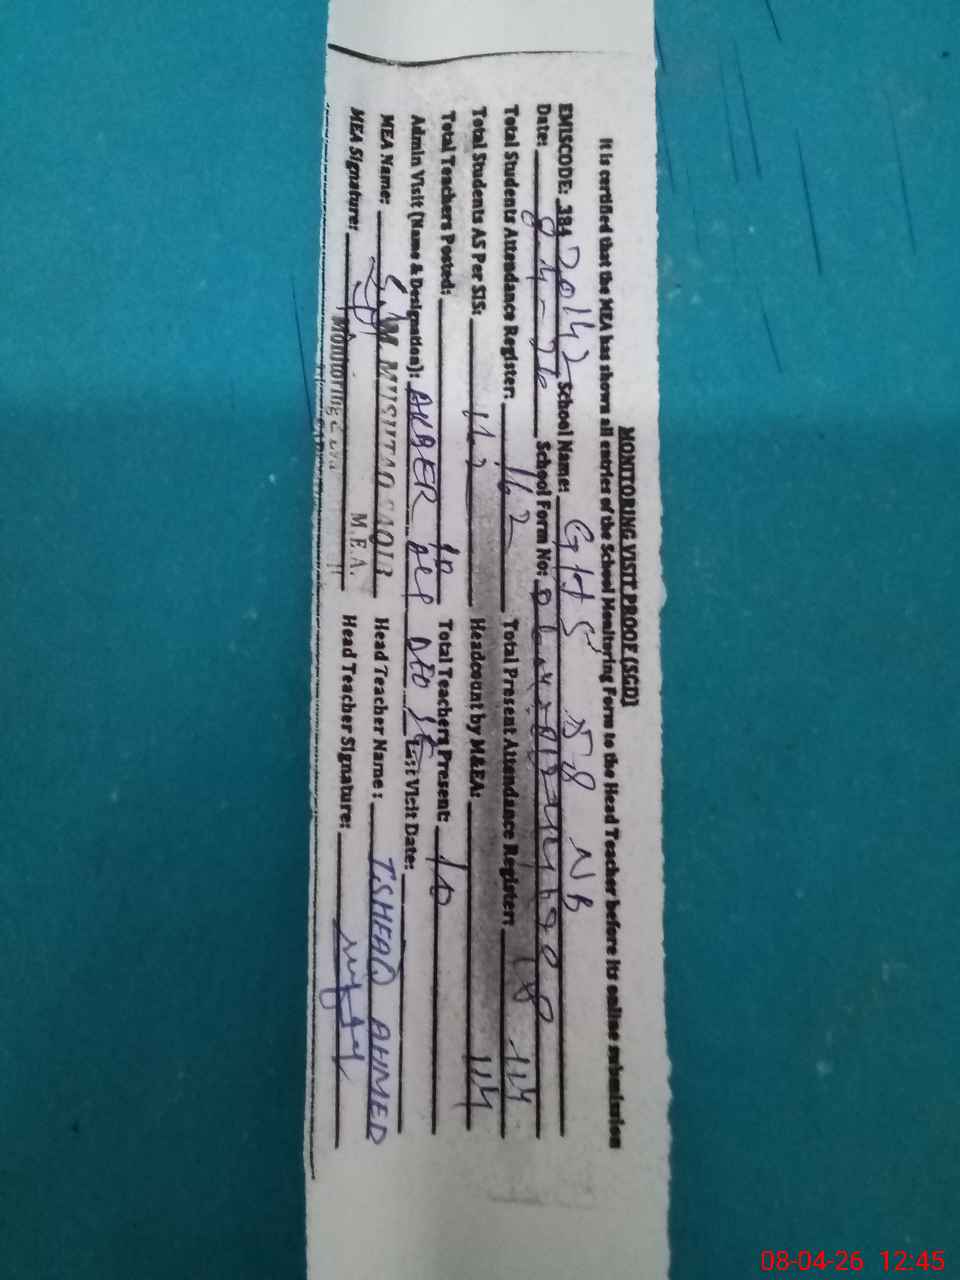 MONITORING VISIT PROOF (SGD)
It is certified that the MEA has shown all entries of the School Monitoring Form to the Head Teacher before its online submission
EMISCODE: 384 20142 School Name: GHS 58 NB
Date: 8-4-26 School Form No:
Total Students Attendance Register: 162 Total Present Attendance Register: 114
Total Students AS Per SIS: 162 Headcount by M&EA: 114
Total Teachers Posted: 10 Total Teachers Present: 10
Admin Visit (Name & Designation): AKBER ALI DEO SE Last Visit Date:
MEA Name: M. MUSHTAQ SAQIB Head Teacher Name: ISHFAQ AHMED
MEA Signature: M.E.A. Head Teacher Signature:
Monitoring
08-04-26 12:45